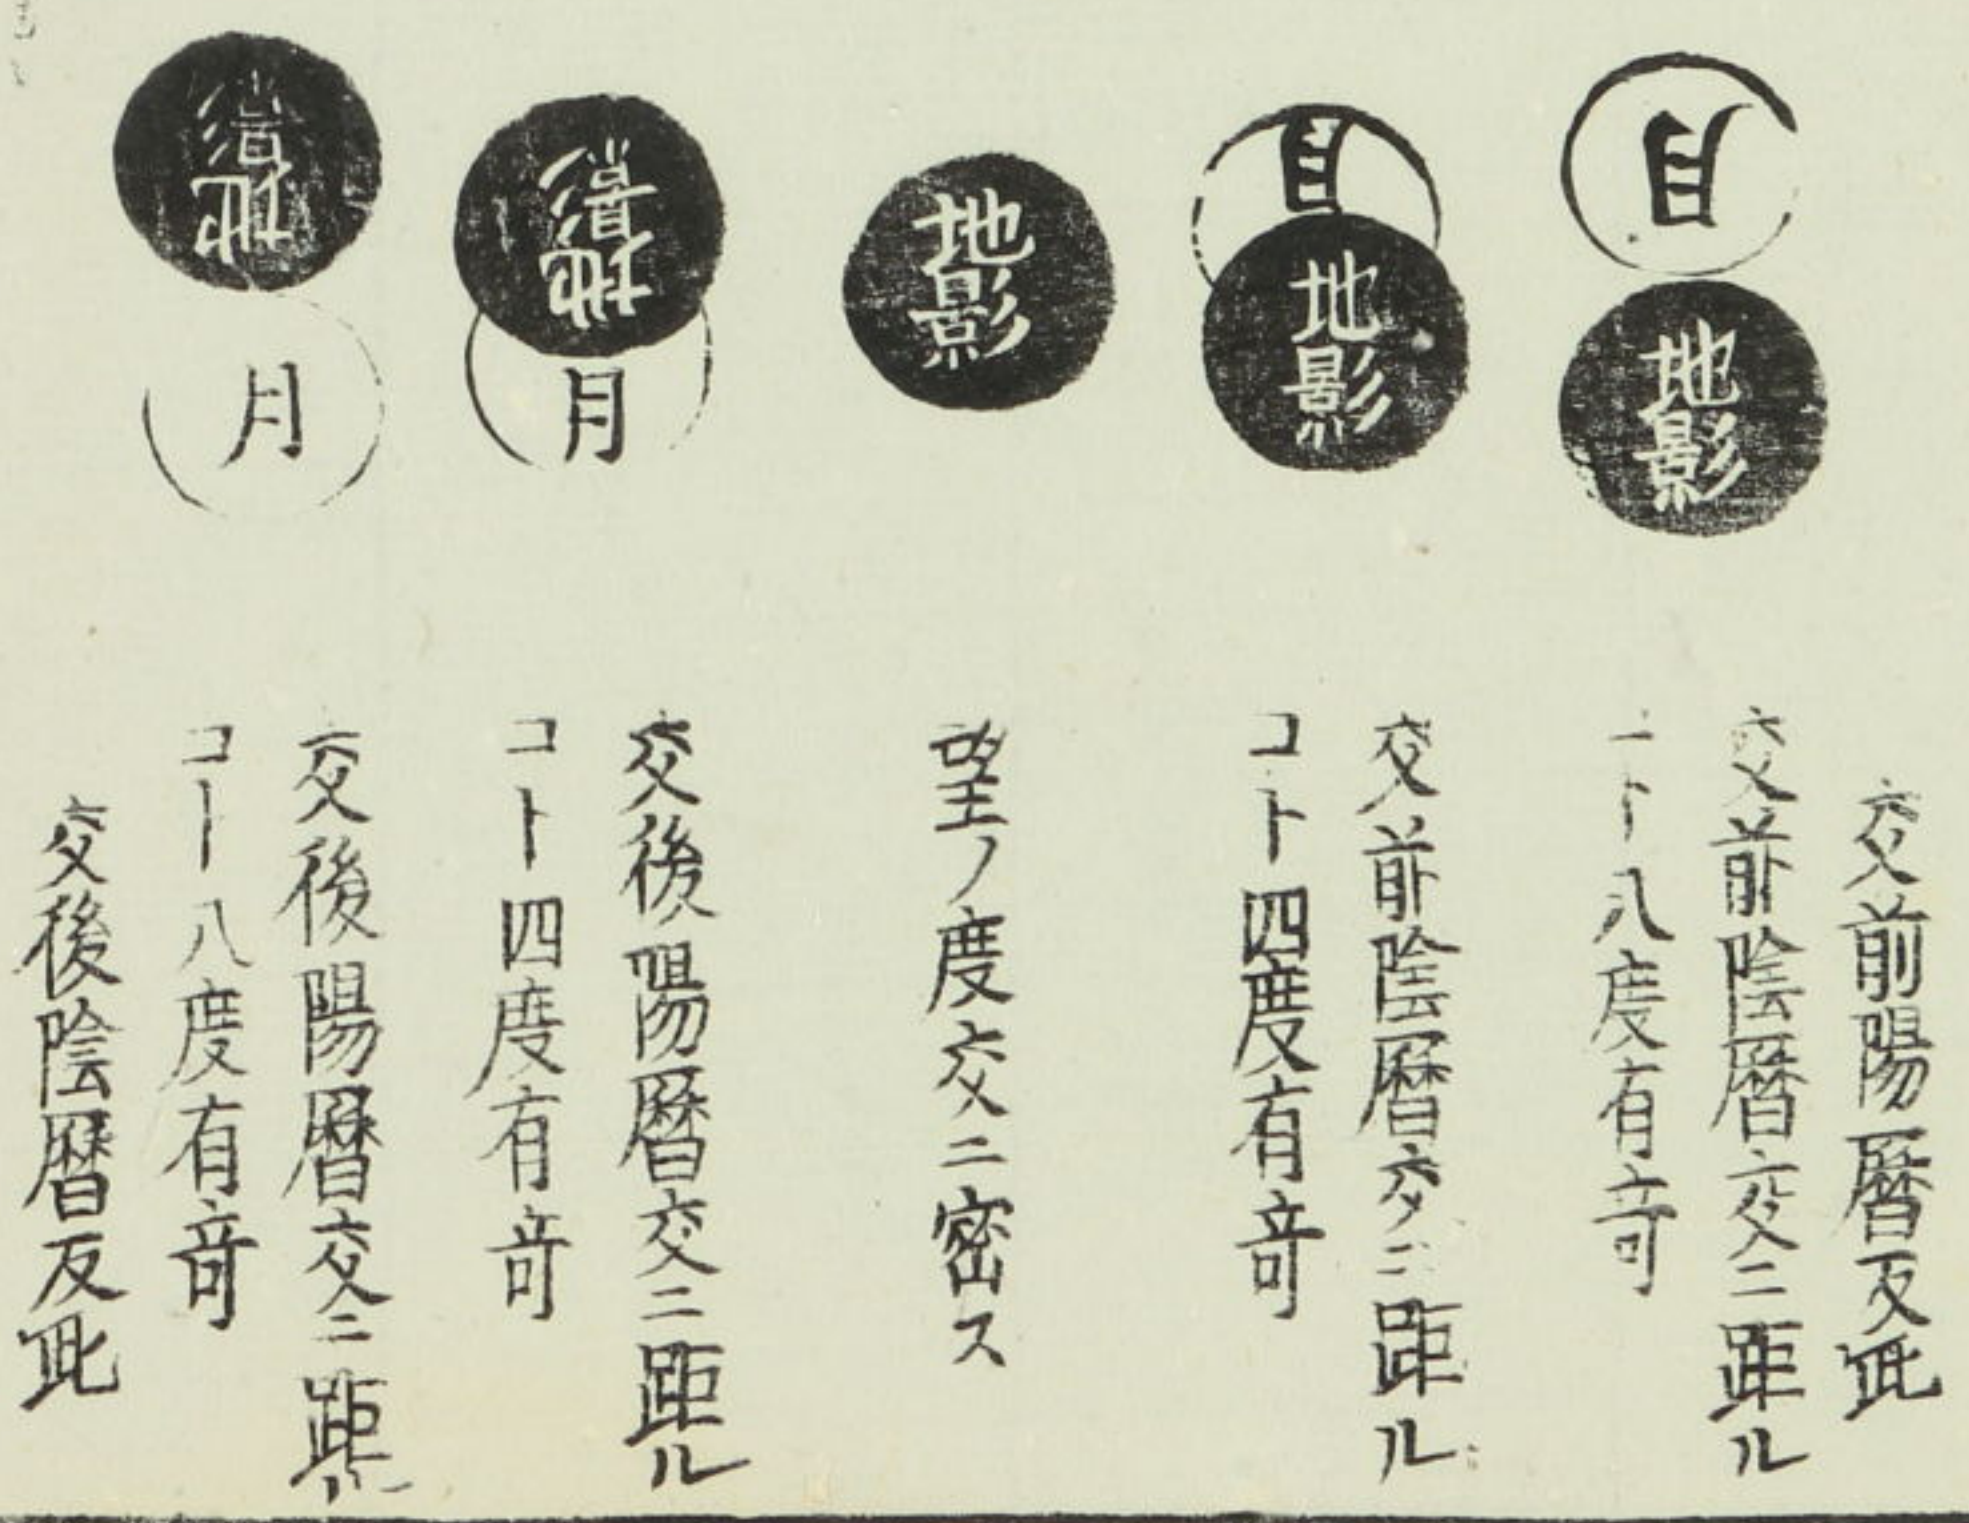 月
地影
月
地影
地影
地影
月
地影
月
交前陽曆反此
交前陰曆交ニ距ル
コト八度有竒
交前陰曆交ニ距ル
コト四度有竒
望ノ度交ニ密ス
交後陽曆交ニ距ル
コト四度有竒
交後陽曆交ニ距ル
コト八度有竒
交後陰曆反此